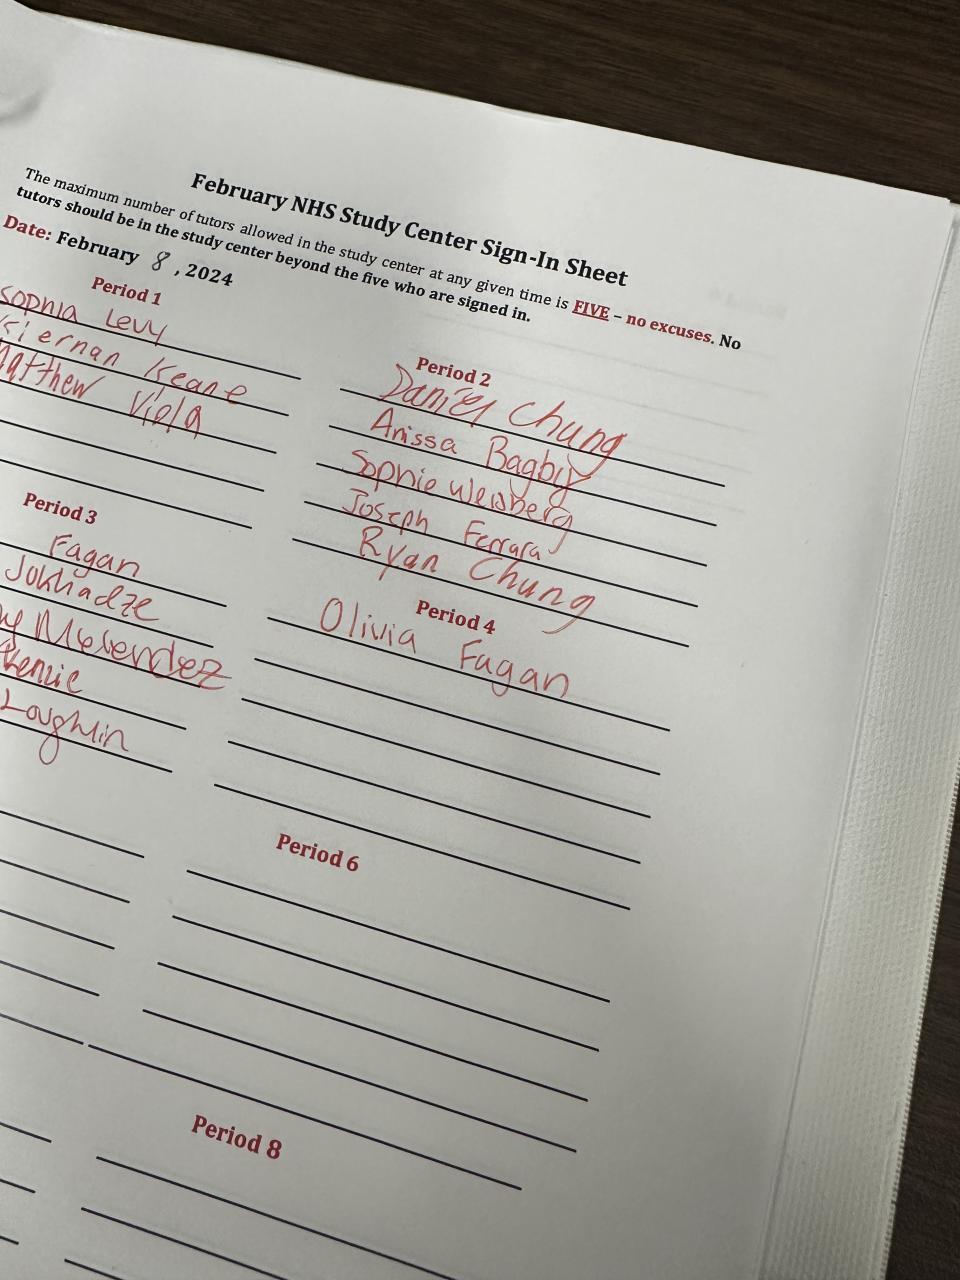 February NHS Study Center Sign-In Sheet
The maximum number of tutors allowed in the study center at any given time is FIVE – no excuses. No
tutors should be in the study center beyond the five who are signed in.
Date: February 8, 2024
Period 1
Sophia Levy
Kiernan Keane
Matthew Viola
Period 2
Daniel Chung
Anissa Bagby
Sophie Weisberg
Joseph Ferrara
Ryan Chung
Period 3
Fagan
Jokhadze
Loughlin
Period 4
Olivia Fagan
Period 6
Period 8